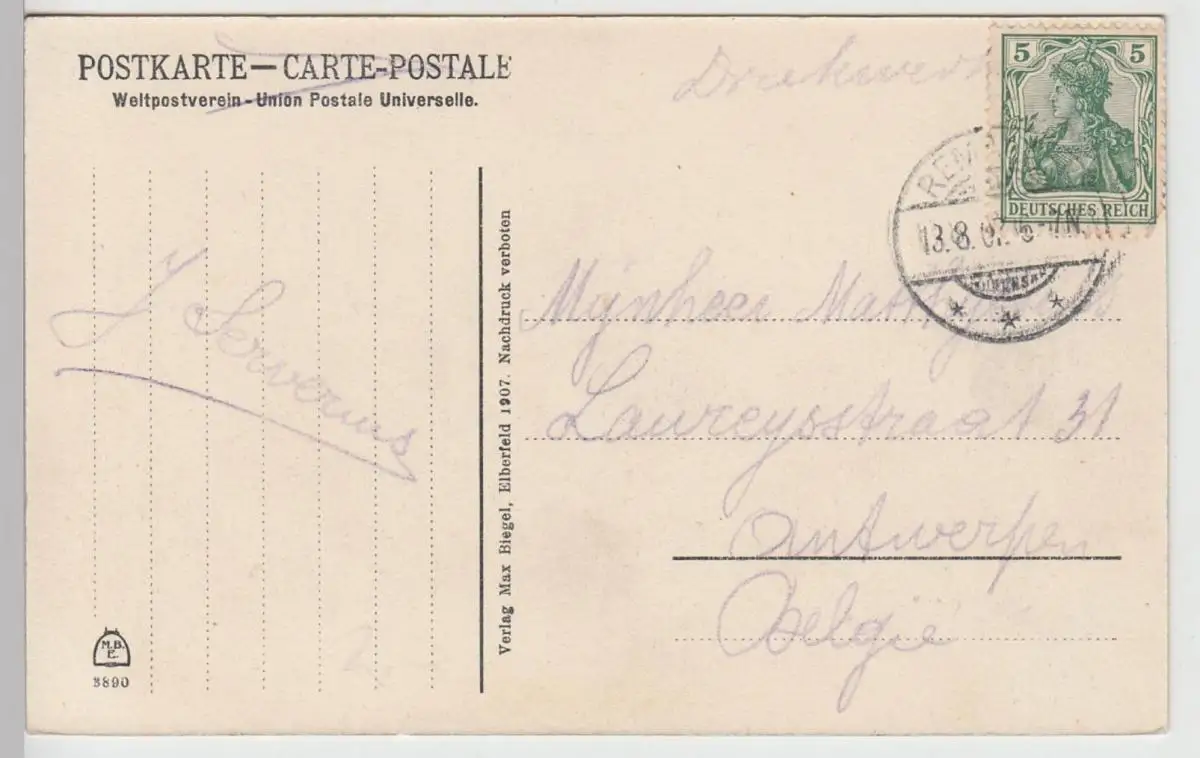 POSTKARTE — CARTE-POSTALE
Weltpostverein - Union Postale Universelle.
Drukwerk
5 5
DEUTSCHES REICH
REM
13.8.07. 6-7N.
J Serverius
Mijnheer
Laureysstraat 31
Antwerpen
België
Verlag Max Biegel, Elberfeld 1907. Nachdruck verboten
M.B.
E.
3890